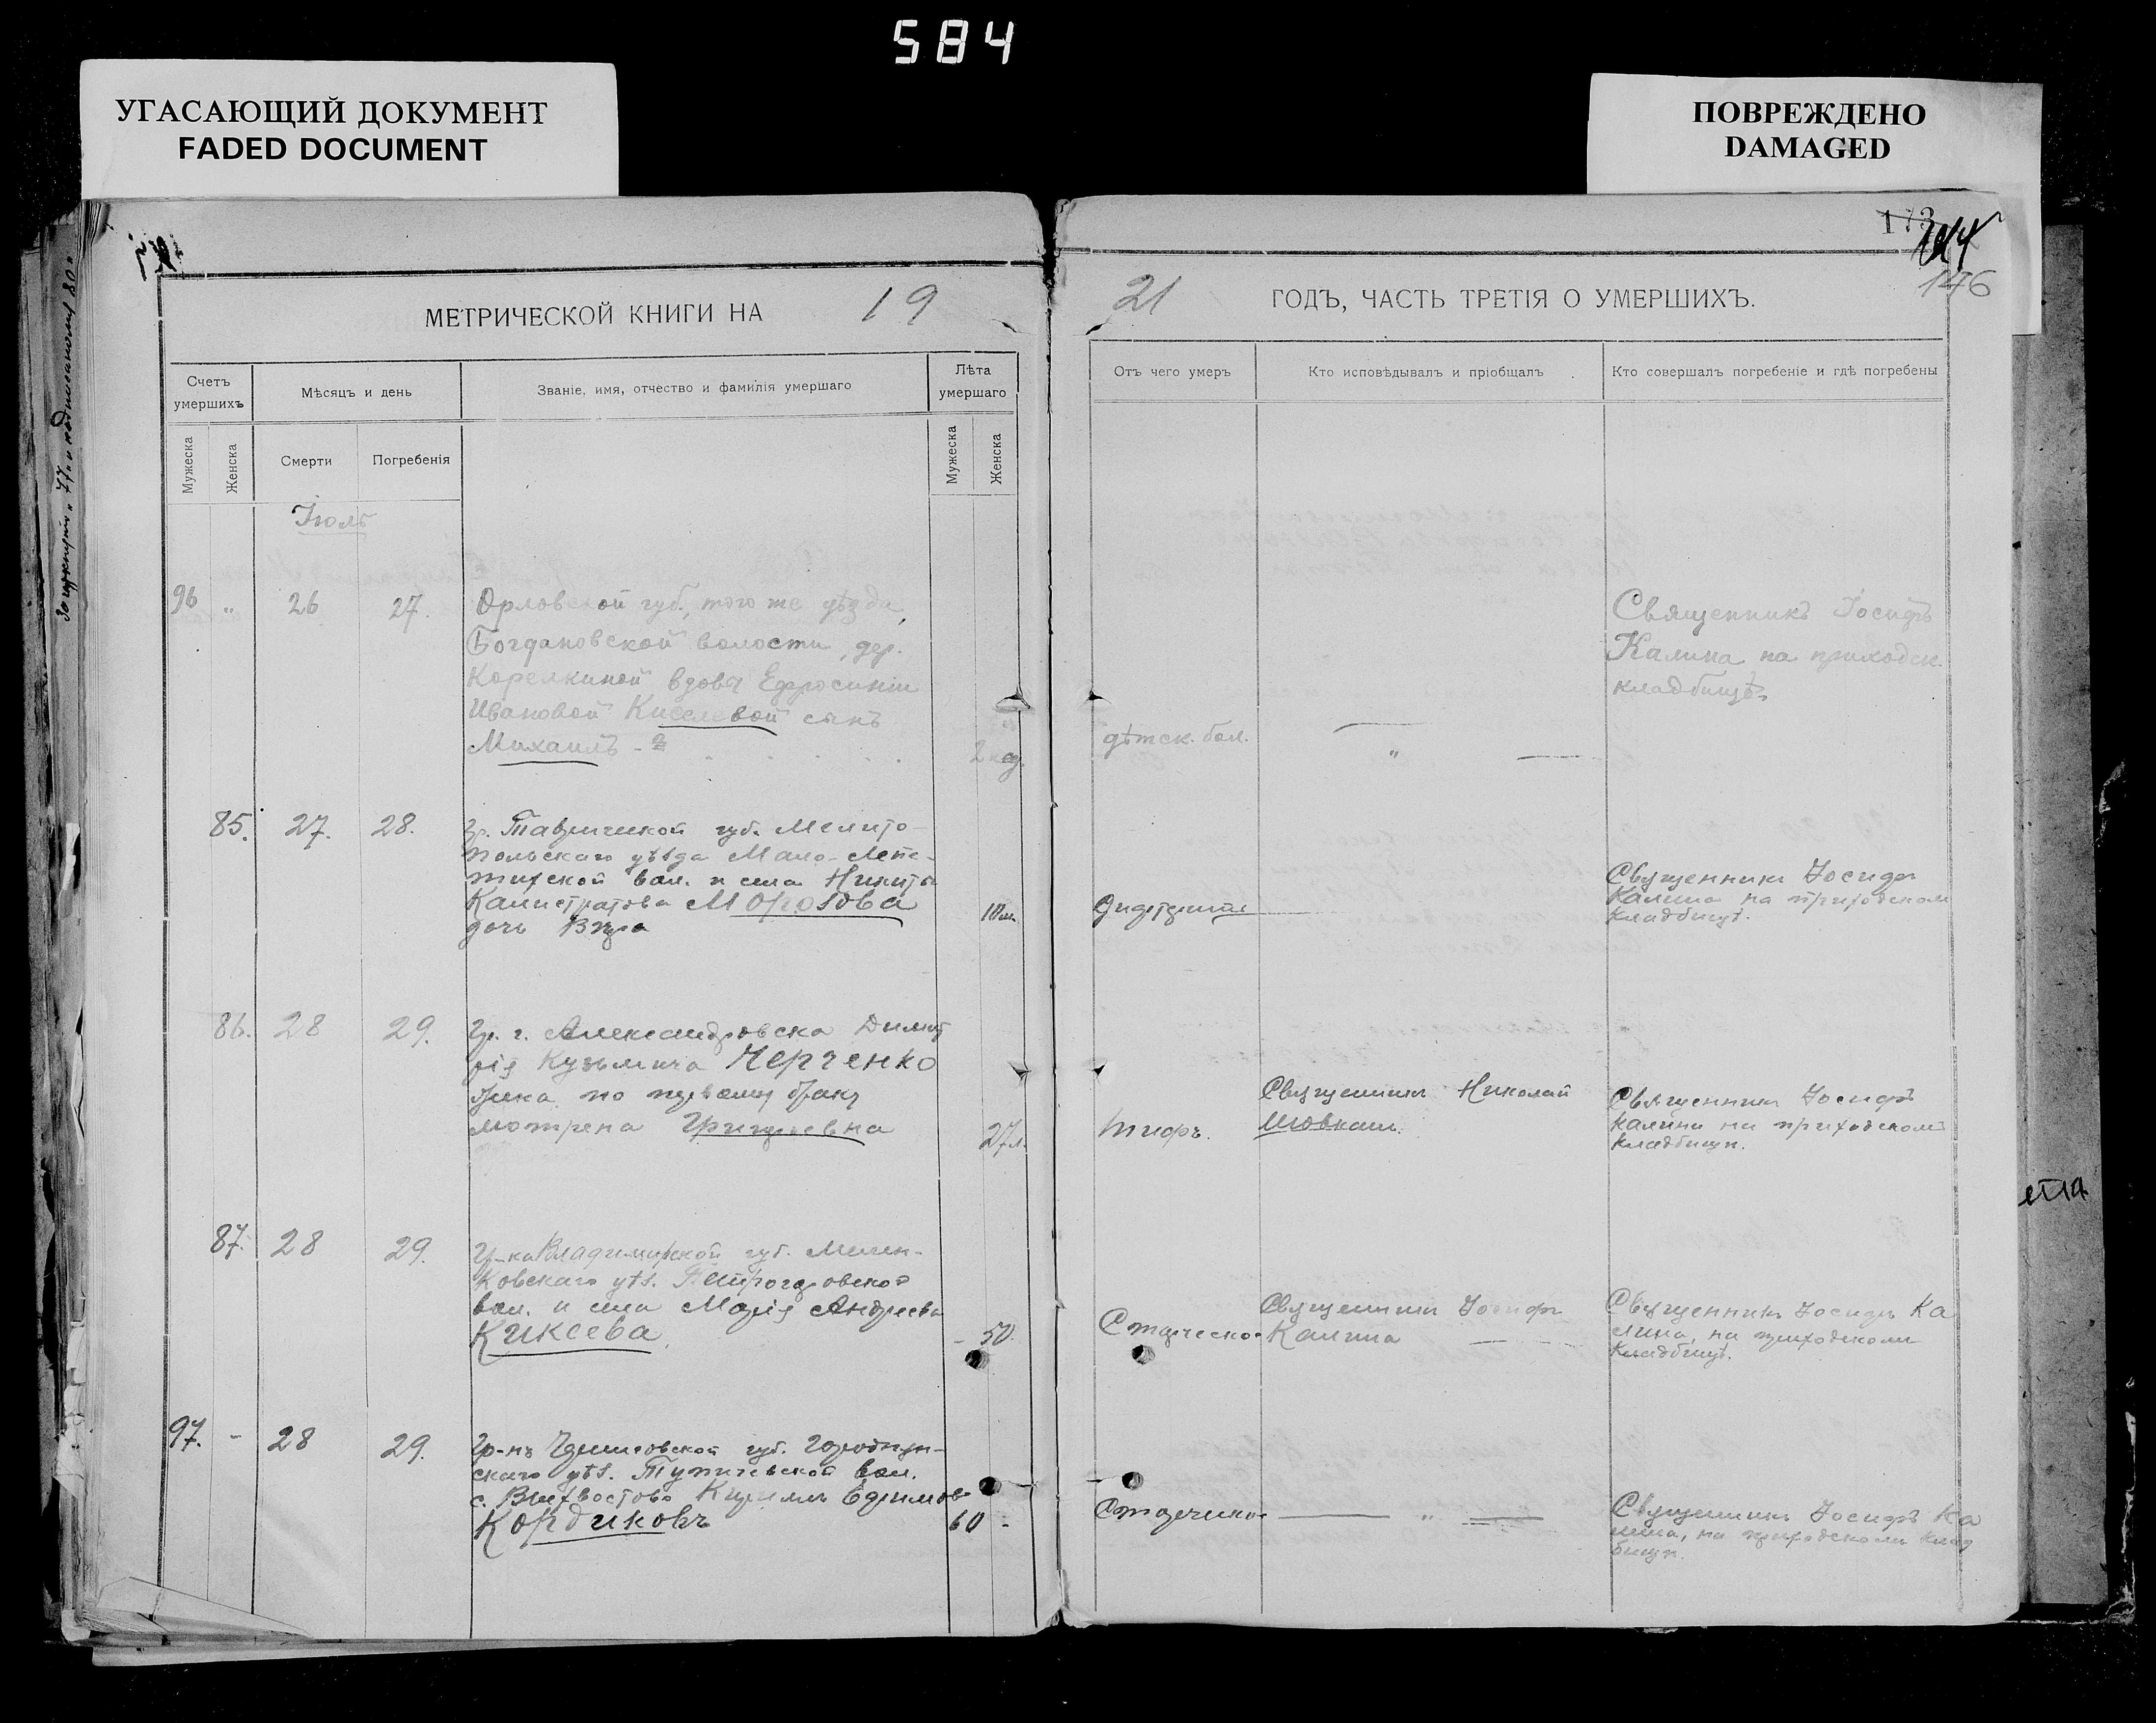 584
УГАСАЮЩИЙ ДОКУМЕНТ
FADED DOCUMENT
ПОВРЕЖДЕНО
DAMAGED
146
МЕТРИЧЕСКОЙ КНИГИ НА 19
21 ГОДЪ, ЧАСТЬ ТРЕТІЯ О УМЕРШИХЪ.
Счетъ умершихъ
Мѣсяцъ и день
Званіе, имя, отчество и фамилія умершаго
Лѣта умершаго
Отъ чего умеръ
Кто исповѣдывалъ и пріобщалъ
Кто совершалъ погребеніе и гдѣ погребены
Мужеска
Женска
Смерти
Погребенія
Мужеска
Женска
Іюль
96 „ 26 27. Орловской губ., того же уѣзда,
Богдановской волости, дер.
вдовы Ефросиніи
Ивановой Киселевой сынъ
Михаилъ
дѣтск. бол. „
Священникъ Іосифъ
Калина на приходск.
кладбищѣ
85. 27. 28. Гр. Таврической губ. Мелито-
польскаго уѣзда Мало-Лепе-
тихской вол. и села Никиты
Калистратова Морозова
дочь Вѣра 10 м.
Священник Іосиф
Калина на приходском
кладбищѣ.
86. 28 29. Гр. г. Александровска Димит
рія Кузьмича Черченко
жена по первому браку
мотрена 27 л.
тифъ.
Священник Николай
Священник Іосифъ
Калина на приходском
кладбищи.
87. 28 29. Гр-ка Владимирской губ. Мелен-
ковскаго уѣз.
вол. и села Марія Андреева
Кикеева - 50.
Старческо
Священник Іосиф
Калина
Священникъ Іосифъ Ка
лина, на приходском
Кладбищѣ.
97. - 28 29. Гр-нъ Черниговской губ. Городнян-
скаго уѣз. Тупичевской вол.
с. Вихвостово Кирилъ Ефимов
Кордиковъ 60 -
Старческо „
Священникъ Іосифъ Ка
лина, на приходском клад
бищи.